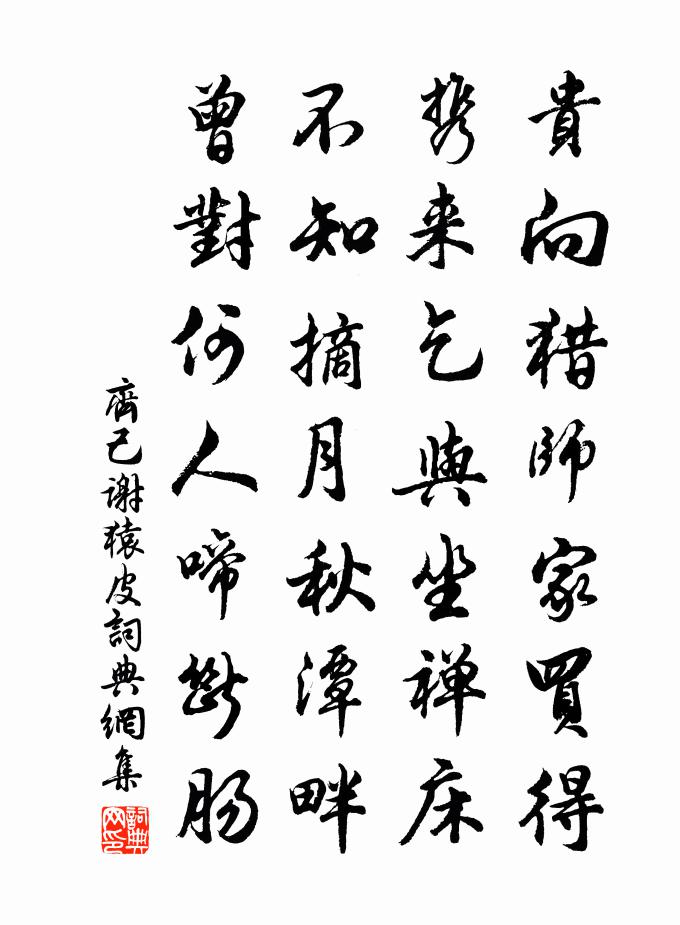 貴向猎師家買得
携来乞與坐禅床
不知摘月秋潭畔
曾對何人啼斷肠
齊己謝猿皮詞典網集
詞典网印